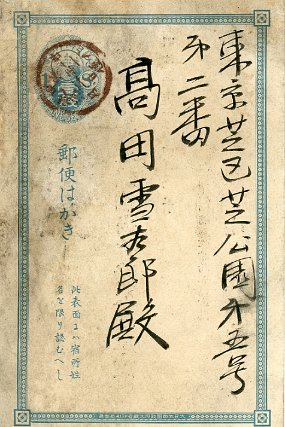 東京芝区芝公園才五号
第二番
高田雪太郎殿
郵便はかき
此表面ニハ宿所姓
名を限り認むへし